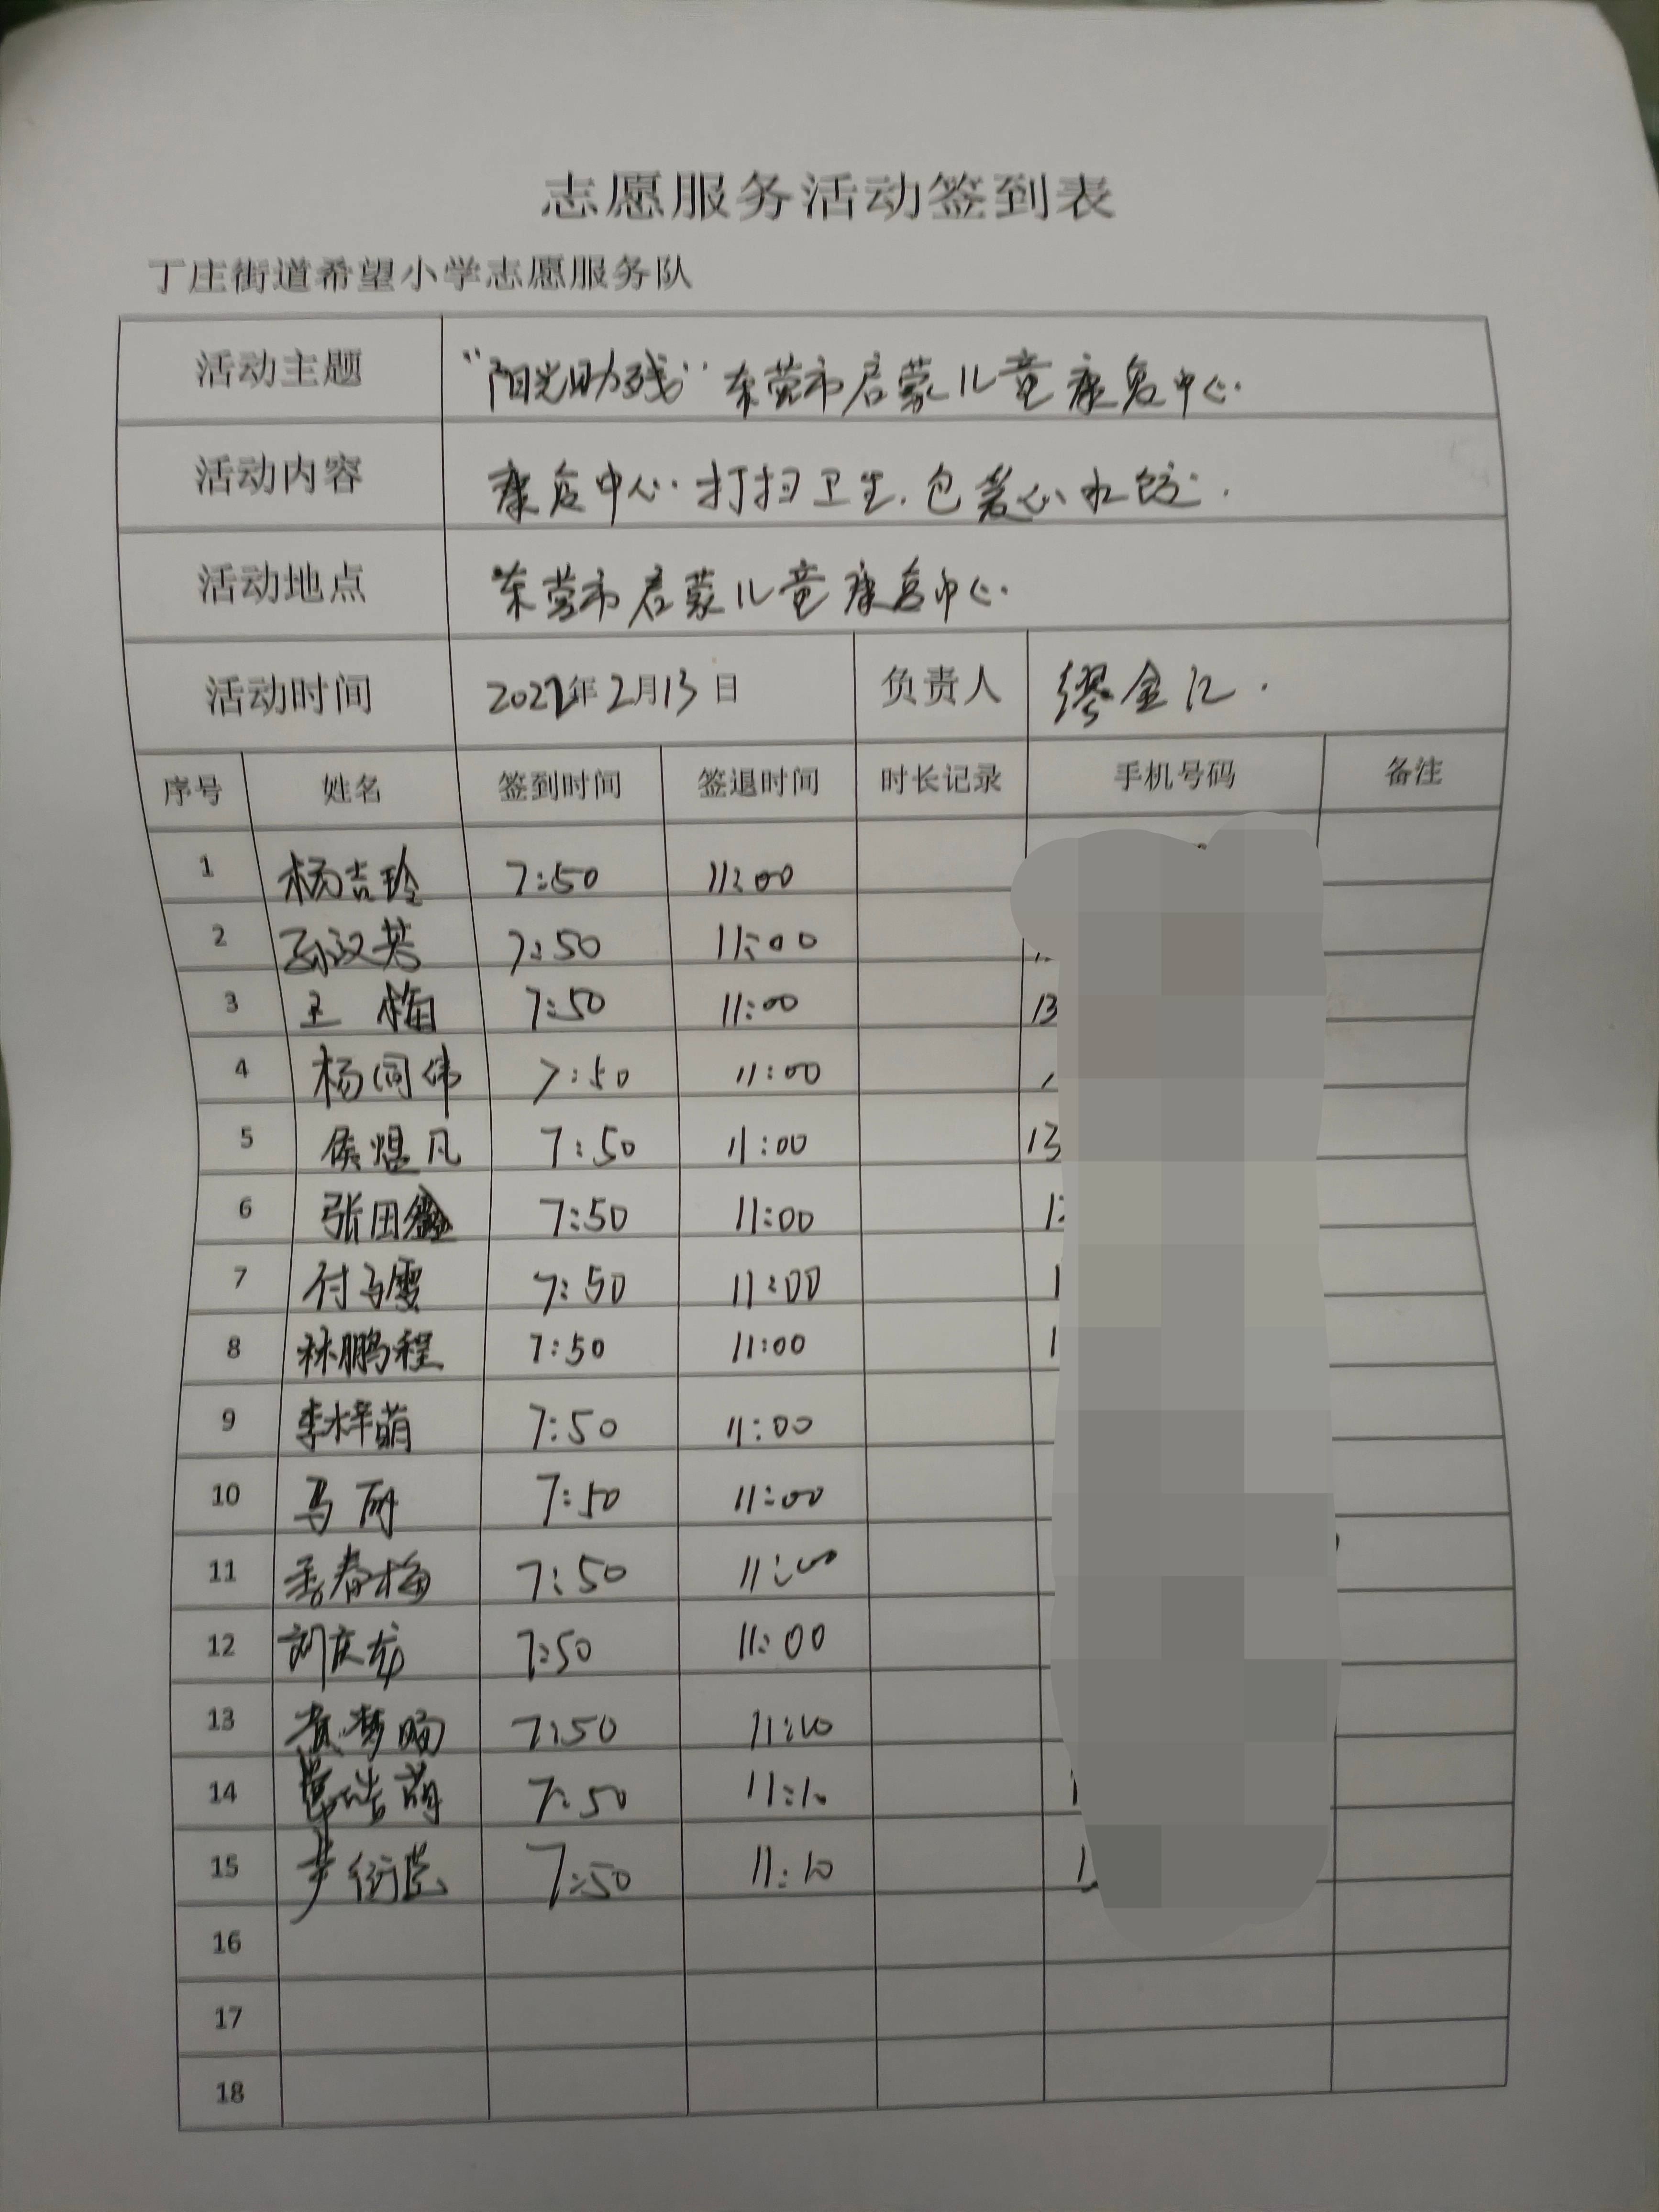 志愿服务活动签到表
丁庄街道希望小学志愿服务队
活动主题 “阳光助残”东营市启蒙儿童康复中心.
活动内容 康复中心.打扫卫生.包爱心水饺.
活动地点 东营市启蒙儿童康复中心.
活动时间 2022年2月13日 负责人 缪金江.
序号 姓名 签到时间 签退时间 时长记录 手机号码 备注
1 杨吉玲 7:50 11:00
2 孙汉芳 7:50 11:00
3 王梅 7:50 11:00 13
4 杨同伟 7:50 11:00
5 侯煜凡 7:50 11:00 13
6 张田 7:50 11:00 1
7 付马雪 7:50 11:00 1
8 林鹏程 7:50 11:00 1
9 李梓萌 7:50 11:00
10 马丽 7:50 11:00
11 春梅 7:50 11:00
12 刘庆龙 7:50 11:00
13 梦 7:50 11:10
14 萌 7:50 11:10
15 尹衍 7:50 11:10
16
17
18